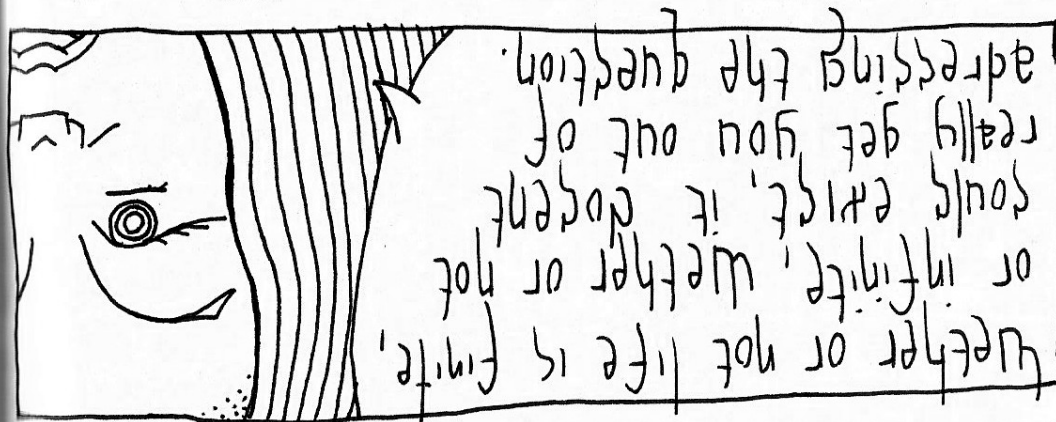 Wether or not life is finite,
or infinite, wether or not
souls exist, it dosent
really get you out of
adressing the question.